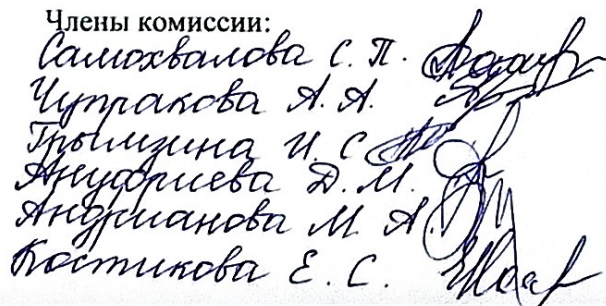 Члены комиссии:
Самохвалова С. П.
Чупракова А. А.
Грымзина И. С
Ануфриева Д. М.
Андрианова М. А.
Костикова Е. С.